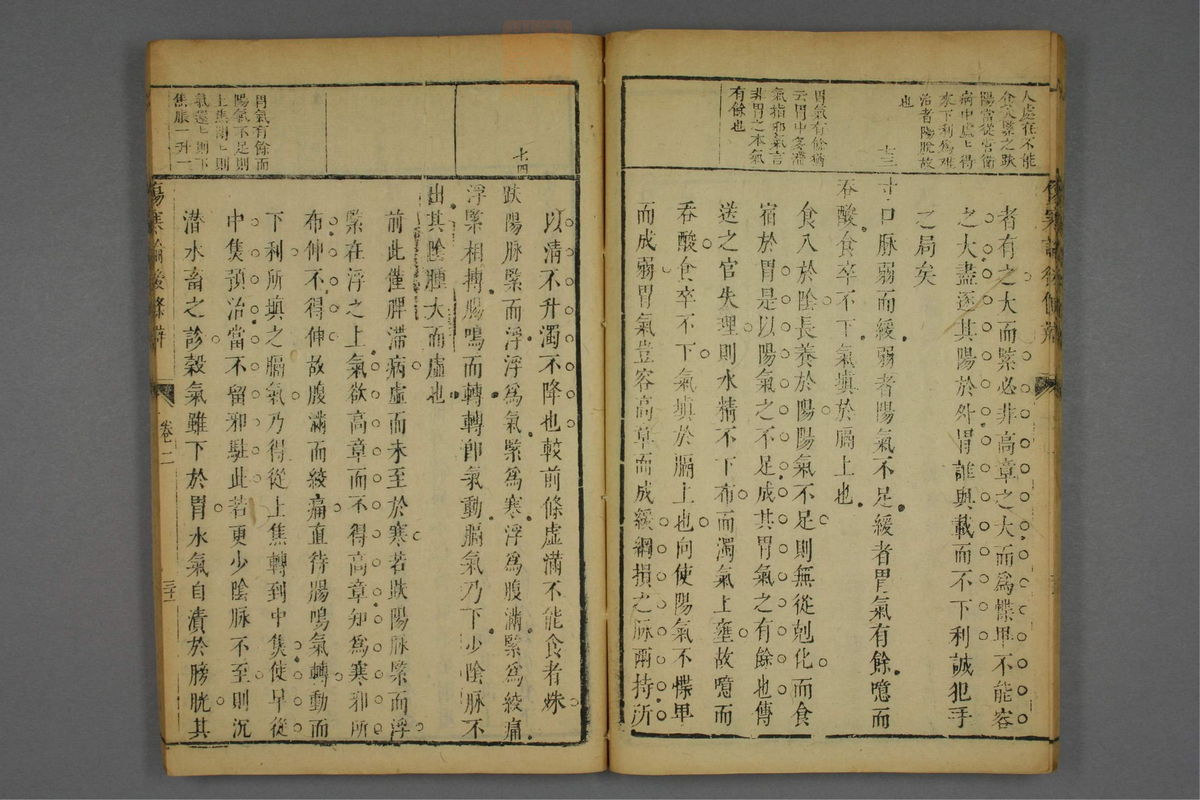 人處在不能
食緊之趺
陽當從宮衛
病中虛上得
來下利爲难
治者陽脫故
也
十三
胃氣有餘病
云胃中多滯
氣指邪氣言
非胃之本氣
有餘也
傷寒論後條辨
者有之大而緊必非高章之大而爲惵卑不能容
之大盡逐其陽於外胃誰與載而不下利誠犯手
之局矣
寸口脉弱而緩弱者陽氣不足緩者胃氣有餘噫而
吞酸食卒不下氣填於膈上也
食入於陰長養於陽陽氣不足則無從剋化而食
宿於胃是以陽氣之不足成其胃氣之有餘也傳
送之官失理則水精不下布而濁氣上壅故噫而
吞酸食卒不下氣填於膈上也向使陽氣不惵卑
而成弱胃氣豈容高章而成緩綱損之脉兩持所
十四
胃氣有餘而
陽氣不足則
上焦閉上則
氣還上則下
焦脹一升一
以清不升濁不降也較前條虛滿不能食者殊
趺陽脉緊而浮浮爲氣緊爲寒浮爲腹滿緊爲絞痛
浮緊相搏腸鳴而轉轉卽氣動膈氣乃下少陰脉不
出其陰腫大而虛也
前此僅脾滯病虛而未至於寒若趺陽脉緊而浮
緊在浮之上氣欲高章而不得高章知爲寒邪所
布伸不得伸故腹滿而絞痛直待腸鳴氣轉動而
下利所填之膈氣乃得從上焦轉到中焦使早從
中焦預治當不留邪駐此若更少陰脉不至則沉
潛水畜之診穀氣雖下於胃水氣自漬於膀胱其
傷寒論後條辨
卷二